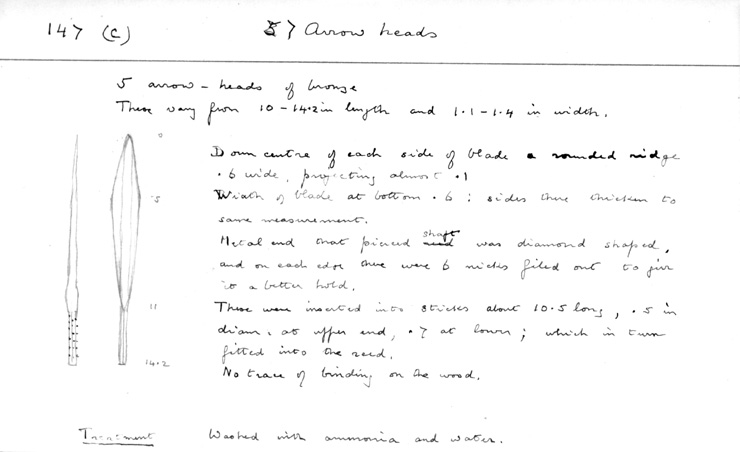 147 (c)
57 Arrow heads
5 arrow-heads of bronze
These vary from 10 - 14.2 in length and 1.1 - 1.4 in width.
Down centre of each side of blade a rounded ridge
.6 wide, projecting almost .1
Width of blade at bottom .6 ; sides there thicken to
same measurement.
Metal end that pierced shaft was diamond shaped,
and on each edge there were 6 nicks filed out to give
it a better hold.
These were inserted into sticks about 10.5 long, .5 in
diam. at upper end, .7 at lower ; which in turn
fitted into the reed.
No trace of binding on the wood.
0
.5
11
14.2
Treatment Washed with ammonia and water.